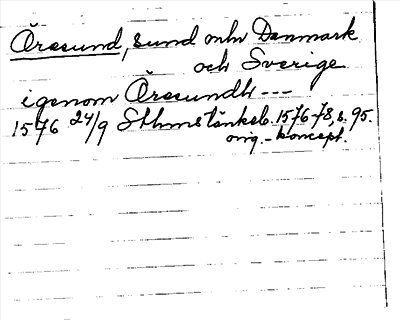 Öresund, sund mln Danmark
och Sverige
igenom Öresundh ---
1576 24/9 Sthms tänkeb. 1576-78, s. 95.
orig.-koncept.